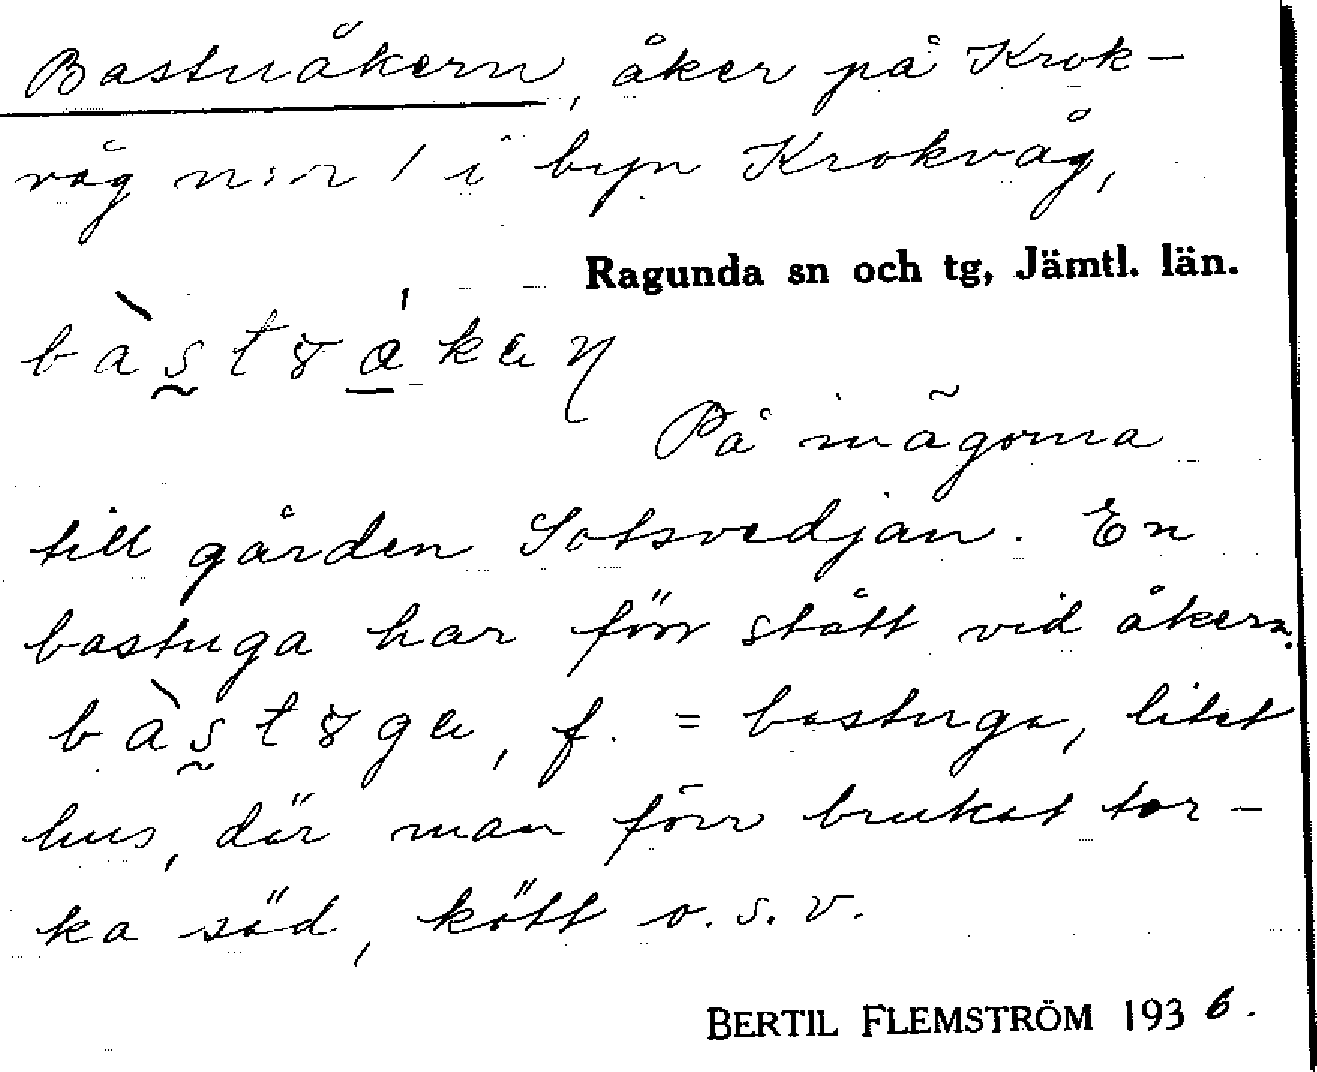 Bastuåkern, åker på Krok-
våg n:r 1 i byn Krokvåg,
Ragunda sn och tg, Jämtl. län.
På inägorna
till gården Sotsvedjan. En
bastuga har förr stått vid åkern.
f. = bastuga, litet
hus, där man förr brukat tor-
ka säd, kött o.s.v.
BERTIL FLEMSTRÖM 1936.